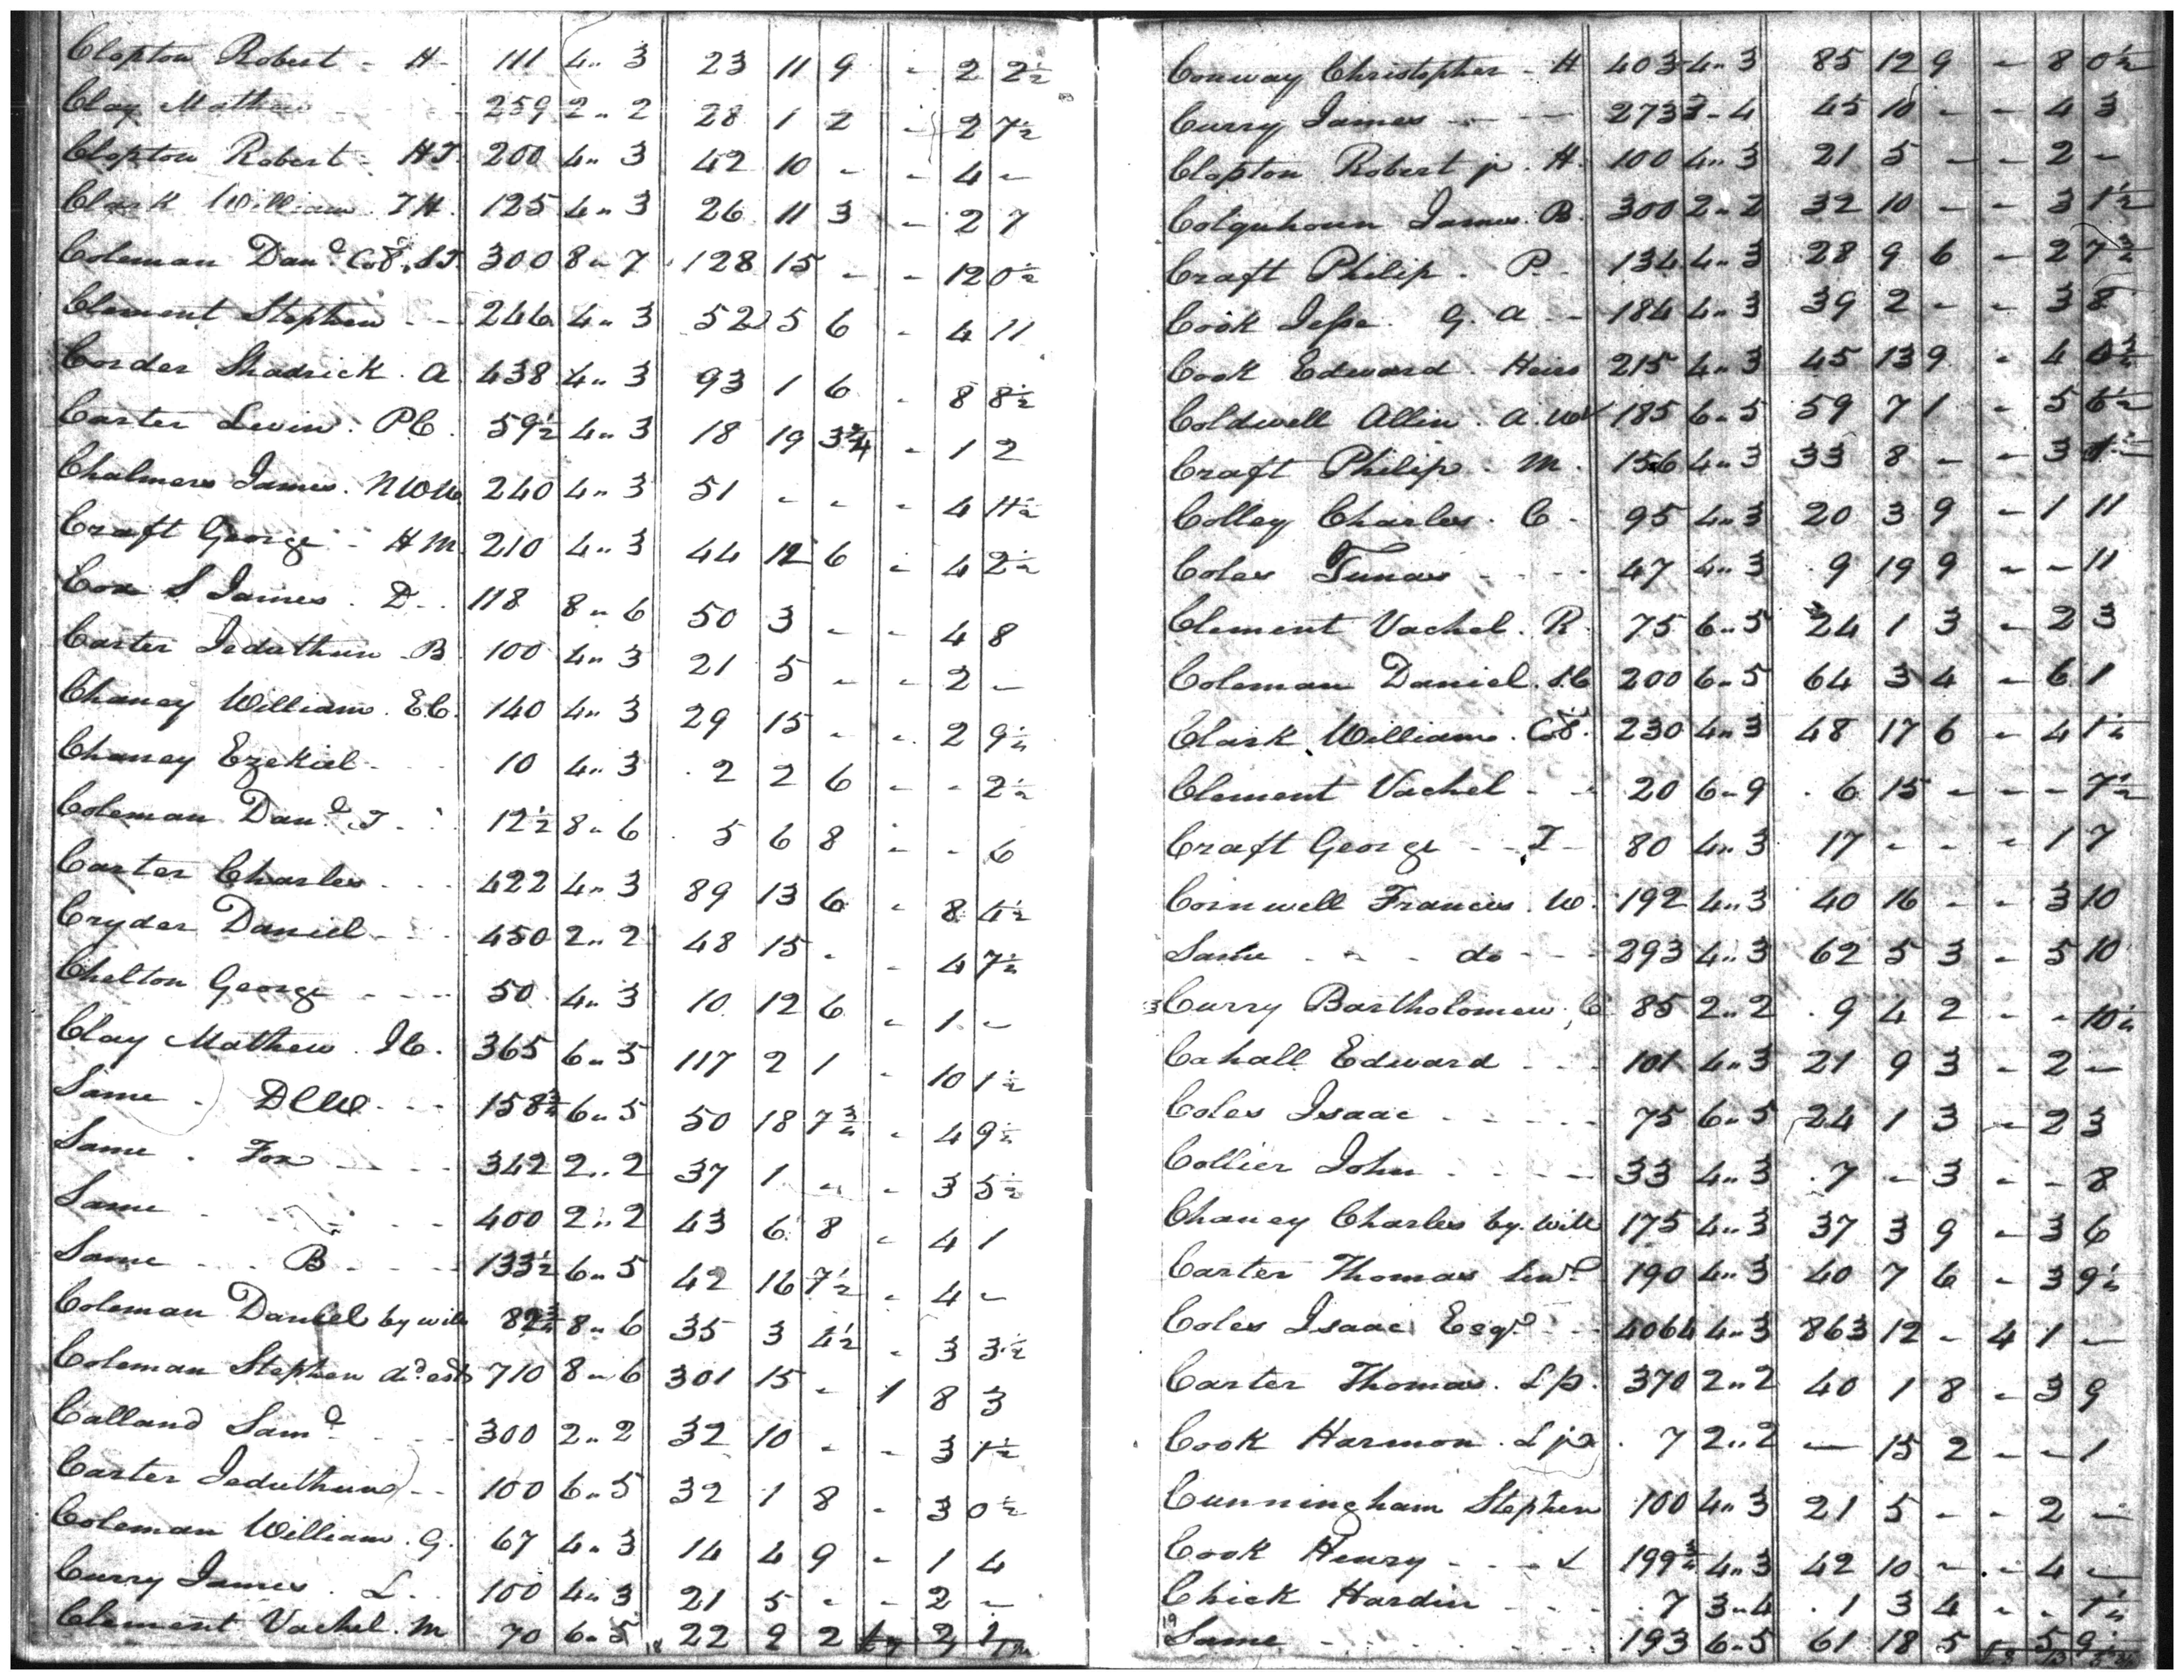 Clopton Robert - H - 111 4 " 3 23 11 9 - 2 2½
Clay Mathew 259 2 " 2 28 1 2 - 2 7½
Clopton Robert - HT. 200 4 " 3 42 10 - - 4 -
Clark William. TH. 125 4 " 3 26 11 3 - 2 7
Coleman Danl. 300 8 " 7 128 15 - - 12 0½
Clement Stephen - - 246 4 " 3 52 5 6 - 4 11
Corder Shadrick. A 438 4 " 3 93 1 6 - 8 8½
Carter Levin. PC. 59½ 4 " 3 18 19 3¾ - 1 2
Chalmers James. 240 4 " 3 51 - - - 4 11½
Craft George - HM 210 4 " 3 44 12 6 - 4 2½
Cox S James. D - . 118 8 " 6 50 3 - - 4 8
Carter Jeduthun - B 100 4 " 3 21 5 - - 2 -
Chaney William. EC. 140 4 " 3 29 15 - - 2 9½
Chaney Ezekiel - 10 4 " 3 2 2 6 - - 2½
Coleman Danl. T. 12½ 8 " 6 5 6 8 - - 6
Carter Charles - - - 422 4 " 3 89 13 6 - 8 4½
Cryder Daniel - - - 450 2 " 2 48 15 - - 4 7½
Chelton George - - - 50 4 " 3 10 12 6 - 1 -
Clay Mathew. IC. 365 6 " 5 117 2 1 - 10 1½
Same - - - 158¾ 6 " 5 50 18 7¾ - 4 9½
Same. Fox - - - 342 2 " 2 37 1 - - 3 5½
Same - - - - 400 2 " 2 43 6 8 - 4 1
Same - - B - - - 133½ 6 " 5 42 16 7½ - 4 -
Coleman Daniel by will 82¾ 8 " 6 35 3 4½ - 3 3½
Coleman Stephen 710 8 " 6 301 15 - 1 8 3
Calland Saml - - 300 2 " 2 32 10 - - 3 1½
Carter Jeduthun - - 100 6 " 5 32 1 8 - 3 0½
Coleman William. G. 67 4 " 3 14 4 9 - 1 4
Curry James. L. 100 4 " 3 21 5 - - 2 -
Clement Vachel. M 70 6 " 5 22 9 2
Conway Christopher - H 403 4 " 3 85 12 9 - 8 0½
Curry James - - - 273 3 - 4 45 10 - - 4 3
Clopton Robert jr. H. 100 4 " 3 21 5 - - 2 -
Colquhoun James. B. 300 2 " 2 32 10 - - 3 1½
Craft Philip. P. 134 4 " 3 28 9 6 - 2 7½
Cook Jesse. G. A - - 184 4 " 3 39 2 - - 3 8
Cook Edward. Heirs 215 4 " 3 45 13 9 - 4
Coldwell Allin. A. 185 6 " 5 59 7 1 - 5 6½
Craft Philip. M. 156 4 " 3 33 8 - - 3
Colley Charles. C - 95 4 " 3 20 3 9 - 1 11
Coles - - - 47 4 " 3 9 19 9 - - 11
Clement Vachel. R. 75 6 " 5 24 1 3 - 2 3
Coleman Daniel. 200 6 " 5 64 3 4 - 6 1
Clark William. 230 4 " 3 48 17 6 - 4 1½
Clement Vachel - - 20 6 - 9 6 15 - - - 7½
Craft George - - T - 80 4 " 3 17 - - - 1 7
Cornwell Francis. W. 192 4 " 3 40 16 - - 3 10
Same - - - do - - - 293 4 " 3 62 5 3 - 5 10
Curry Bartholomew. C 85 2 " 2 9 4 2 - - 10½
Cahall Edward - - - 101 4 " 3 21 9 3 - 2 -
Coles Isaac - - - - 75 6 " 5 24 1 3 - 2 3
Collier John - - - - 33 4 " 3 7 - 3 - - 8
Chaney Charles by will 175 4 " 3 37 3 9 - 3 6
Carter Thomas 190 4 " 3 40 7 6 - 3 9½
Coles Isaac Esqr. - - 4064 4 " 3 863 12 - 4 1 -
Carter Thomas. 370 2 " 2 40 1 8 - 3 9
Cook Harmon. 7 2 " 2 - 15 2 - - 1
Cunningham Stephen 100 4 " 3 21 5 - - 2 -
Cook Henry - - - 199¾ 4 " 3 42 10 - - 4 -
Chick Hardin - - - 7 3 " 4 1 3 4 - - 1½
Same - - - - 193 6 " 5 61 18 5